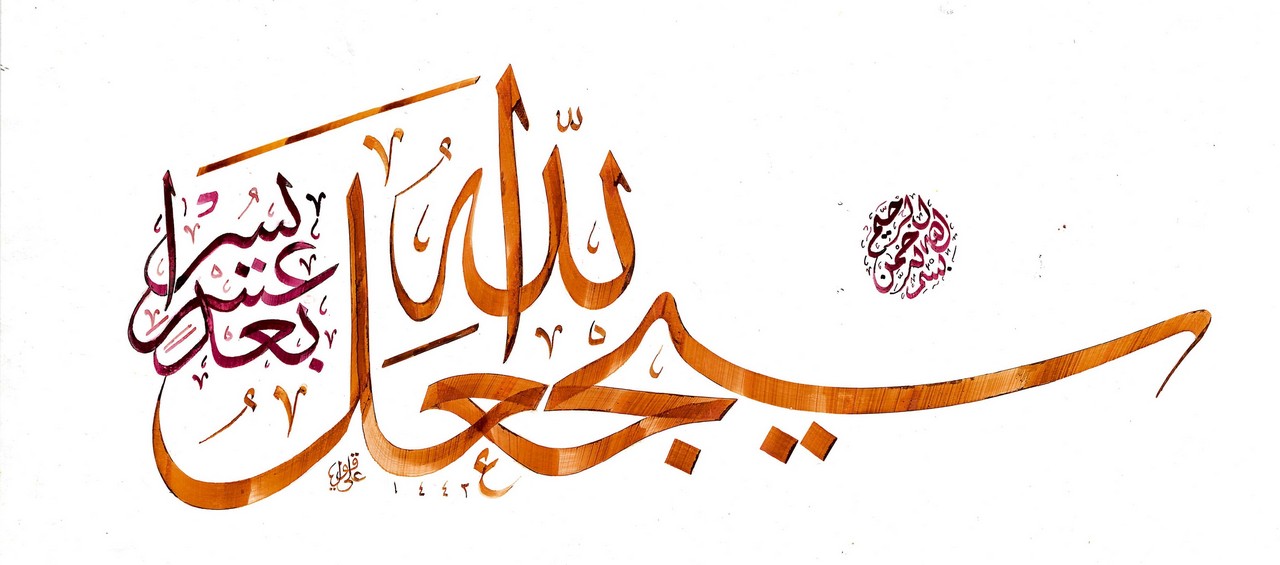 بسم الله الرحمن الرحيم
سيجعل الله
بعد عسر يسرا
١٤٤٣